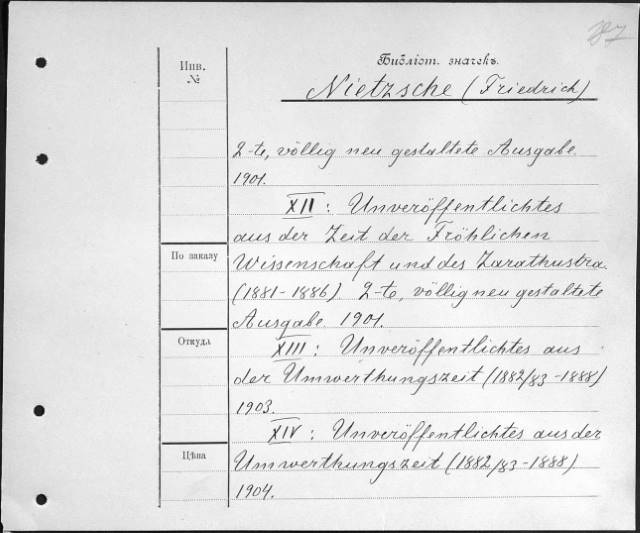 37
Библіот. значекъ.
Инв.
№
Nietzsche (Friedrich)
2-te, völlig neu gestaltete Ausgabe.
1901.
XII: Unveröffentlichtes
aus der Zeit der Fröhlichen
По заказу
Wissenschaft und des Zarathustra.
(1881-1886). 2-te, völlig neu gestaltete
Ausgabe. 1901.
Откуда
XIII: Unveröffentlichtes aus
der Umwerthungszeit (1882/83-1888)
1903.
XIV: Unveröffentlichtes aus der
Цѣна
Umwerthungszeit (1882/83-1888)
1904.